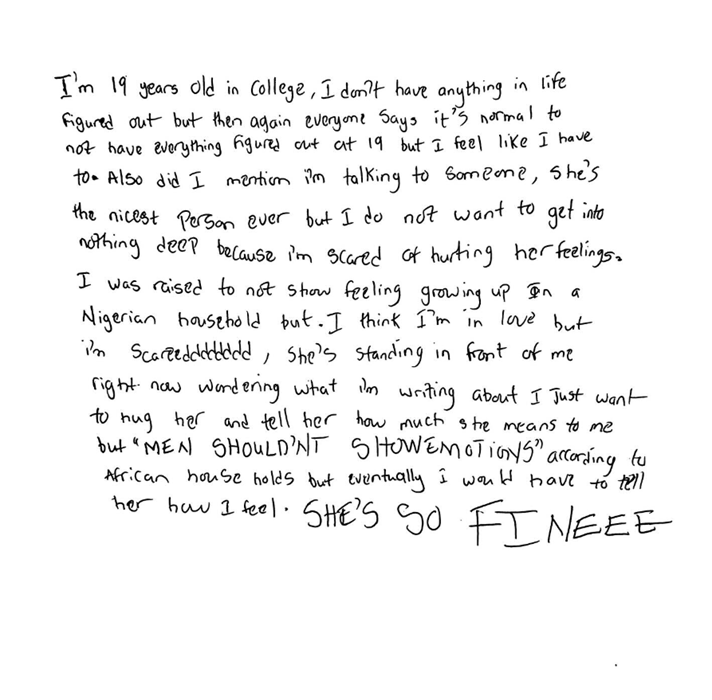 I'm 19 years old in College, I don't have anything in life
figured out but then again everyone says it's normal to
not have everything figured out at 19 but I feel like I have
to. Also did I mention i'm talking to someone, she's
the nicest Person ever but I do not want to get into
nothing deep because i'm scared of hurting her feelings.
I was raised to not show feeling growing up in a
Nigerian household but. I think I'm in love but
i'm Scareedddddddd, She's Standing in front of me
right now wondering what i'm writing about I Just want
to hug her and tell her how much she means to me
but "MEN SHOULD'NT SHOWEMOTIONS" according to
African house holds but eventually i would have to tell
her how I feel. SHE'S SO FINEEE